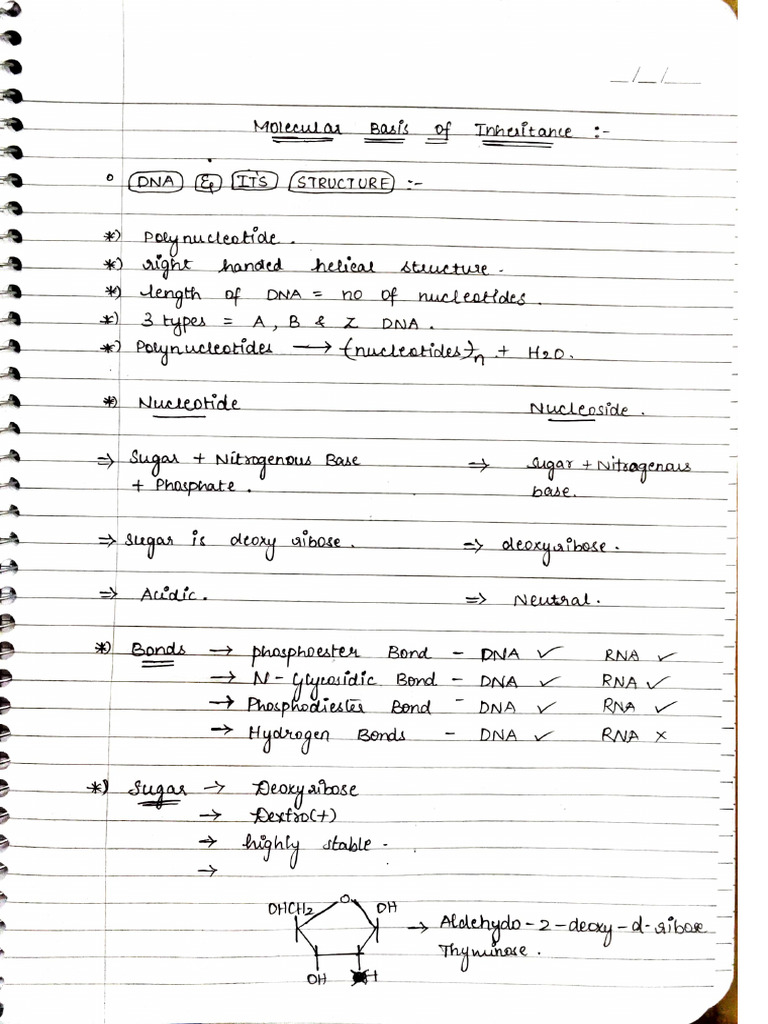 _/_/_
Molecular Basis of Inheritance :-
° DNA & ITS STRUCTURE :-
*) Polynucleotide.
*) right handed helical structure.
*) length of DNA = no of nucleotides.
*) 3 types = A, B & Z DNA.
*) Polynucleotides → (nucleotides)n + H2O.
*) Nucleotide Nucleoside.
⇒ Sugar + Nitrogenous Base ⇒ sugar + Nitrogenous
+ Phosphate. base.
⇒ Sugar is deoxy ribose. ⇒ deoxyribose.
⇒ Acidic. ⇒ Neutral.
*) Bonds → phosphoester Bond - DNA ✓ RNA ✓
→ N-Glycosidic Bond - DNA ✓ RNA ✓
→ Phosphodiester Bond - DNA ✓ RNA ✓
→ Hydrogen Bonds - DNA ✓ RNA ×
*) Sugar → Deoxyribose
→ Dextro(+)
→ highly stable.
→
OHCH2 O OH → Aldehydo-2-deoxy-d-ribose
Thyminose.
OH H